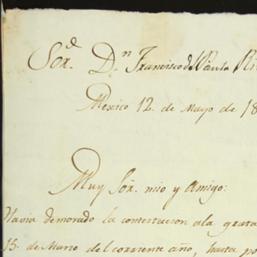 Sor. Dn. Francisco de Paula
Mexico 12. de Mayo de 18
Muy Sór. mio y Amigo:
Havia demorado la contextacion ala grata
15. de Marzo del corriente año, hasta